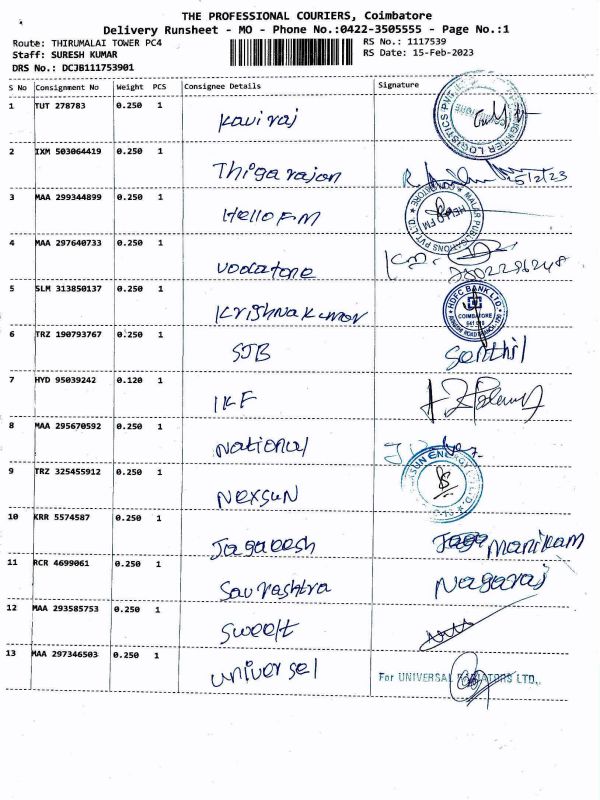 THE PROFESSIONAL COURIERS, Coimbatore
Delivery Runsheet - MO - Phone No.:0422-3505555 - Page No.:1
Route: THIRUMALAI TOWER PC4 RS No.: 1117539
Staff: SURESH KUMAR RS Date: 15-Feb-2023
DRS No.: DCJB111753901
S No Consignment No Weight PCS Consignee Details Signature
1 TUT 278783 0.250 1 Kaviraj
2 IXM 503064419 0.250 1 Thigarajan 15/2/23
3 MAA 299344899 0.250 1 Hello FM HELLO FM MALAR PUBLICATIONS PVT. LTD.
4 MAA 297640733 0.250 1 Vodafone
5 SLM 313850137 0.250 1 Krishna Kumar HDFC BANK LTD COIMBATORE
6 TRZ 190793767 0.250 1 SJB Senthil
7 HYD 95039242 0.120 1 IKF
8 MAA 295670592 0.250 1 National
9 TRZ 325455912 0.250 1 Nexsun
10 KRR 5574587 0.250 1 Jagadesh Manikam
11 RCR 4699061 0.250 1 Saurashtra Nagaraj
12 MAA 293585753 0.250 1 Sweelt
13 MAA 297346503 0.250 1 Universel For UNIVERSAL RADIATORS LTD,.